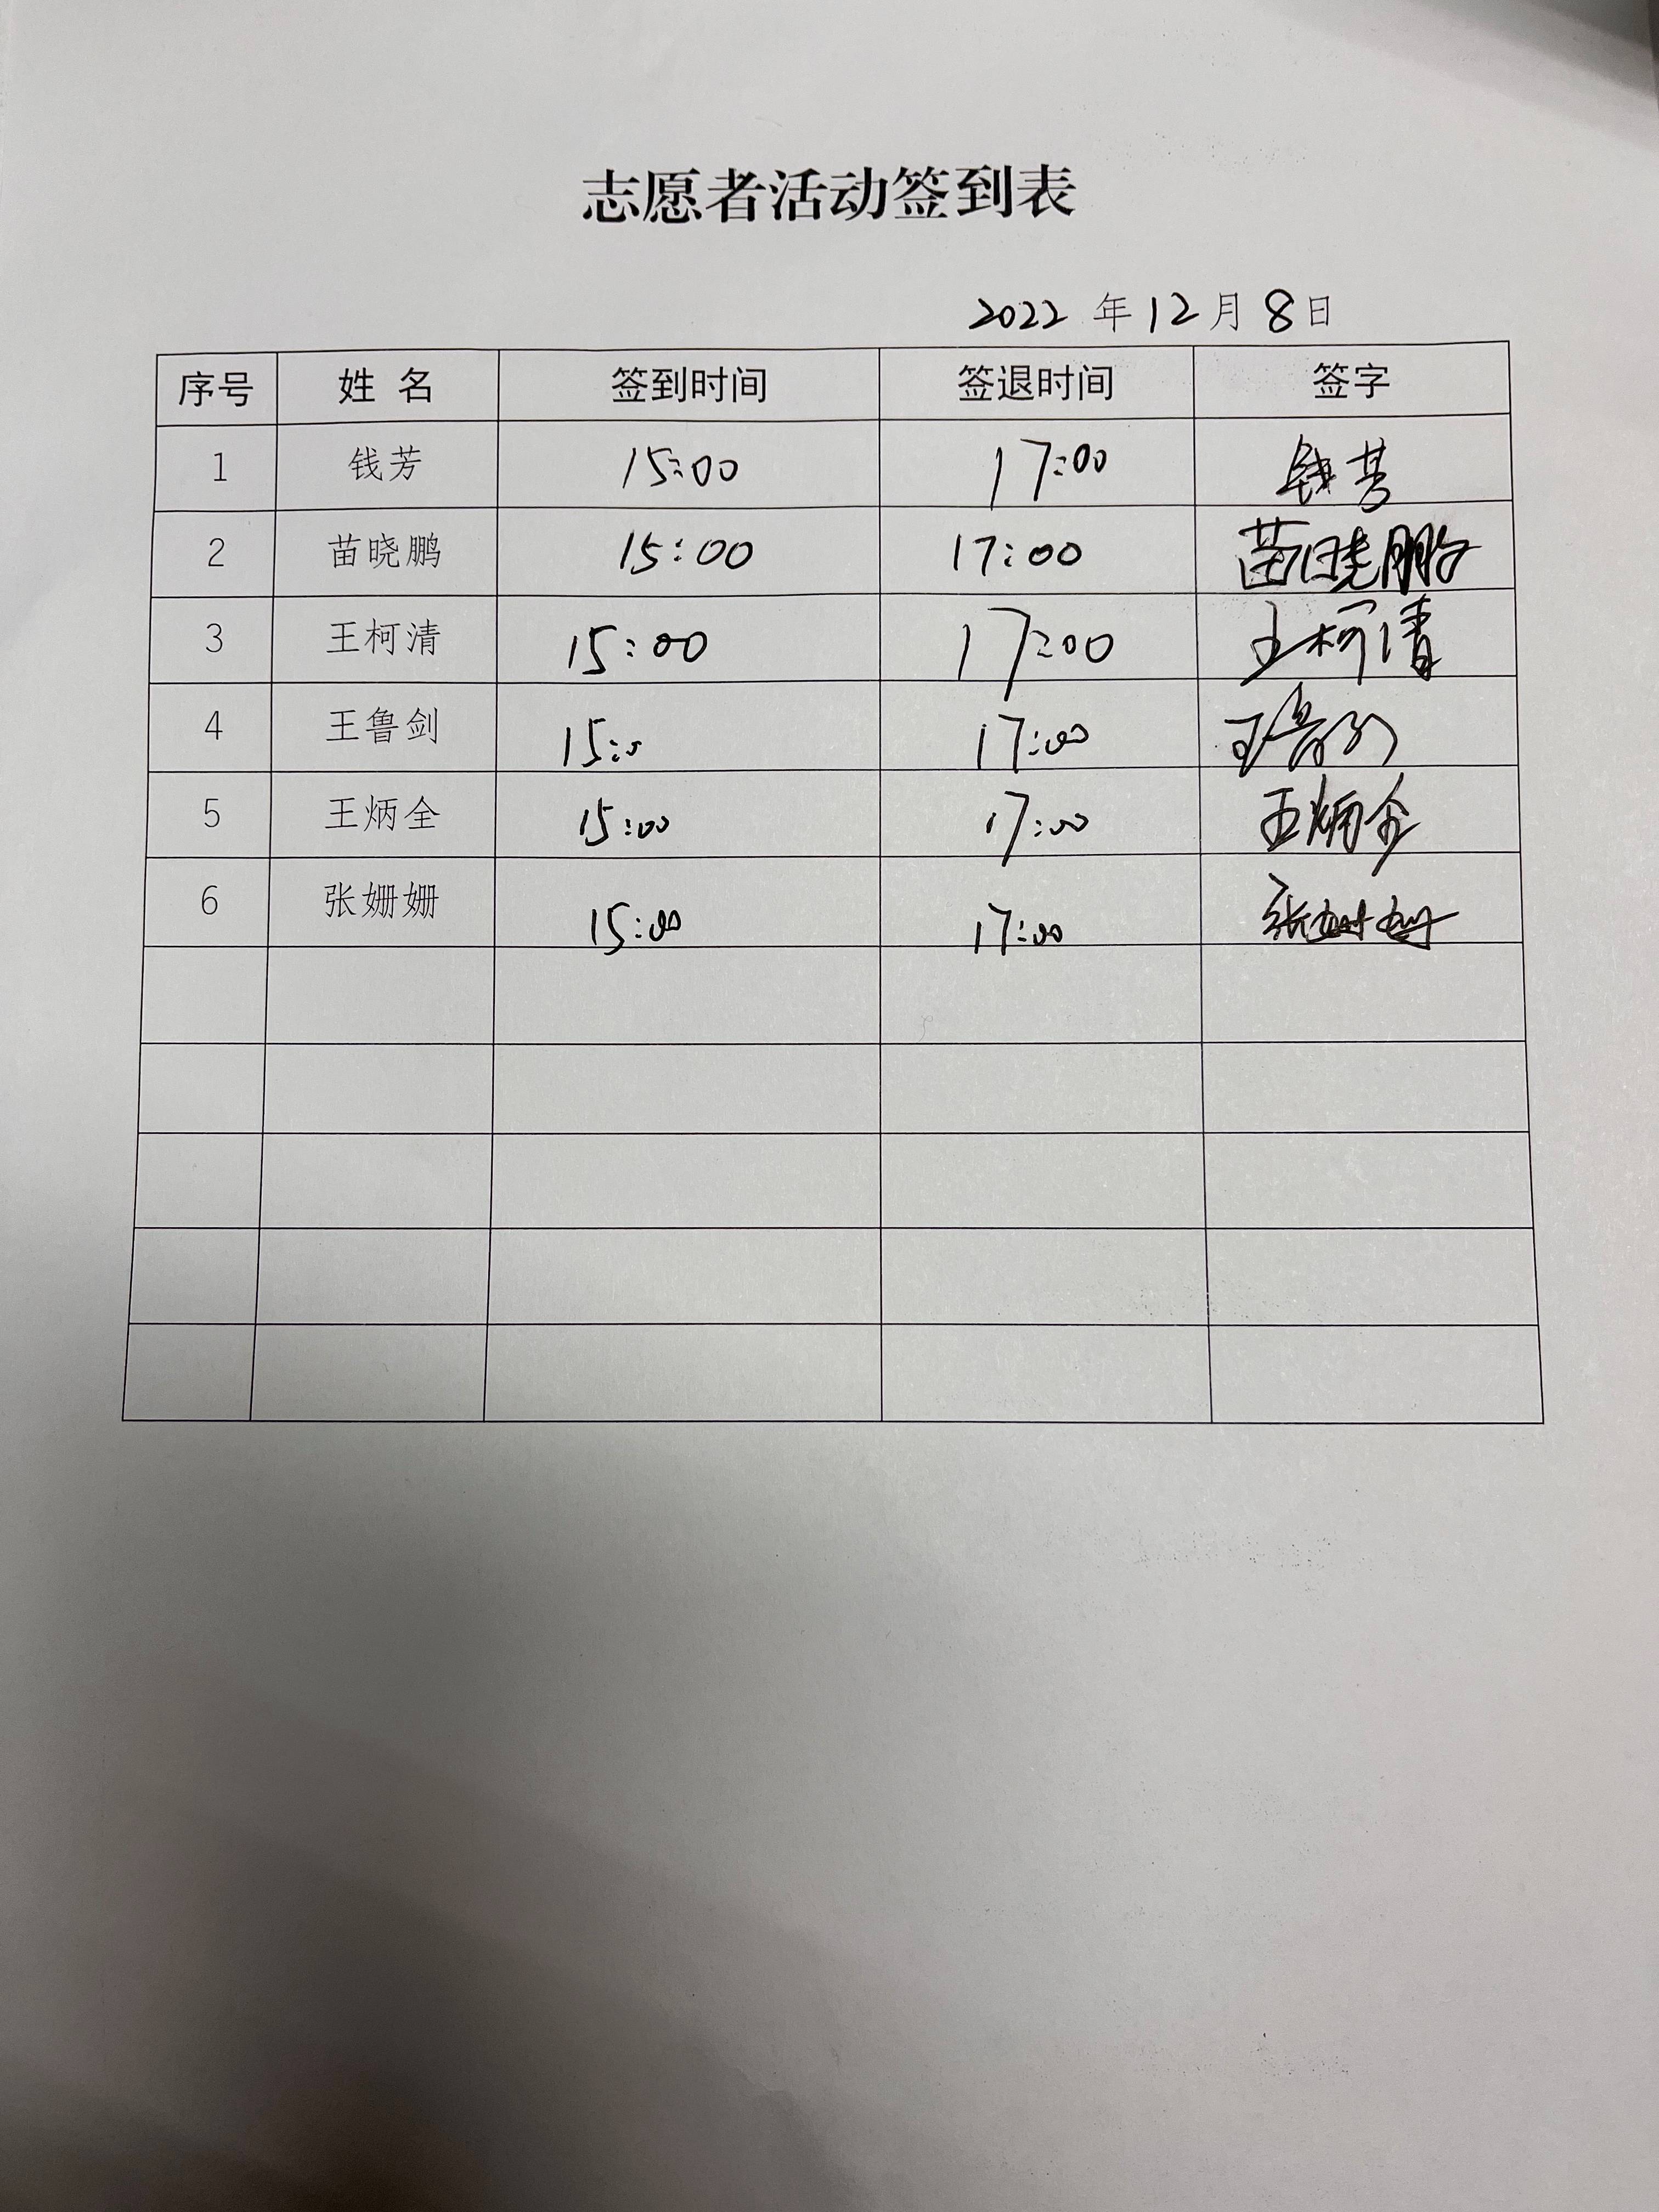 志愿者活动签到表
2022 年 12 月 8 日
序号 姓 名 签到时间 签退时间 签字
1 钱芳 15:00 17:00 钱芳
2 苗晓鹏 15:00 17:00 苗晓鹏
3 王柯清 15:00 17:00 王柯清
4 王鲁剑 15: 17:00 王鲁剑
5 王炳全 15:00 17:00 王炳全
6 张姗姗 15:00 17:00 张姗姗